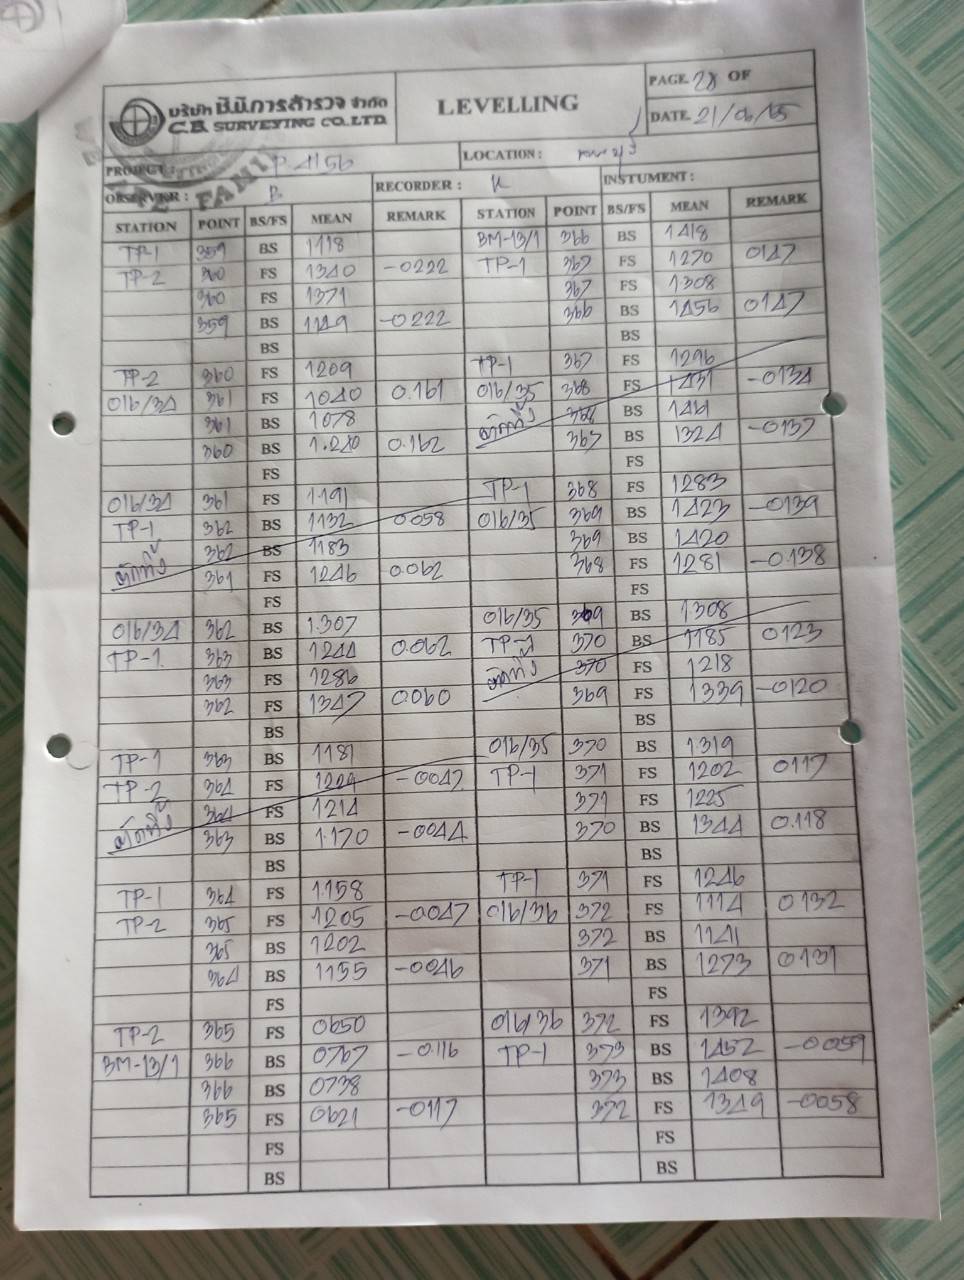 บริษัท ซี.บี.การสำรวจ จำกัด
C.B. SURVEYING CO.,LTD.
LEVELLING
PAGE. 28 OF
DATE. 21/
PROJECT : P-4156
LOCATION :
OBSERVER : B.
RECORDER : K
INSTUMENT :
STATION POINT BS/FS MEAN REMARK STATION POINT BS/FS MEAN REMARK
TP-1 359 BS 1118 BM-13/1 366 BS 1418
TP-2 360 FS 1340 -0222 TP-1 367 FS 1270 0147
360 FS 1371 367 FS 1308
359 BS 1149 -0222 366 BS 1456 0147
BS BS
TP-2 360 FS 1209 TP-1 367 FS 1296
016/34 361 FS 1040 0.161 016/35 368 FS 1431 -0134
361 BS 1078 ตัดทิ้ง 368 BS 1461
360 BS 1.240 0.162 367 BS 1324 -0137
FS FS
016/34 361 FS 1191 TP-1 368 FS 1283
TP-1 362 BS 1132 0058 016/35 369 BS 1423 -0139
ตัดทิ้ง 362 BS 1183 369 BS 1420
361 FS 1246 0.062 368 FS 1281 -0.138
FS FS
016/34 362 BS 1.307 016/35 369 BS 1308
TP-1. 363 BS 1244 0.062 TP-1 370 BS 1185 0123
363 FS 1286 ตัดทิ้ง 370 FS 1218
362 FS 1347 0.060 369 FS 1339 -0120
BS BS
TP-1 363 BS 1181 016/35 370 BS 1.319
TP-2 364 FS 1229 -0047 TP-1 371 FS 1202 0117
ตัดทิ้ง 364 FS 1214 371 FS 1225
363 BS 1.170 -0044 370 BS 1344 0.118
BS BS
TP-1 364 FS 1158 TP-1 371 FS 1246
TP-2 365 FS 1205 -0047 016/36 372 FS 1114 0132
365 BS 1202 372 BS 1141
364 BS 1155 -0046 371 BS 1273 0131
FS FS
TP-2 365 FS 0650 016/36 372 FS 1392
BM-13/1 366 BS 0767 -0.116 TP-1 373 BS 1452 -0059
366 BS 0738 373 BS 1408
365 FS 0621 -0117 372 FS 1349 -0058
FS FS
BS BS